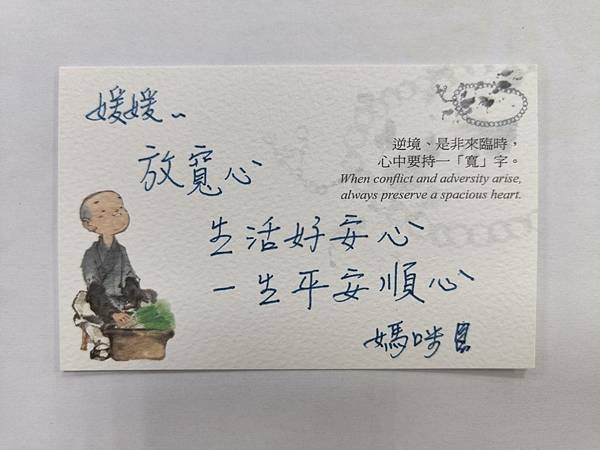 媛媛..
逆境、是非來臨時，
心中要持一「寬」字。
When conflict and adversity arise,
always preserve a spacious heart.
放寬心
生活好安心
一生平安順心
媽咪